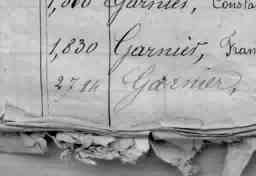 Garnier, Consta
1,830 Garnier, Fran
2714 Garnier,